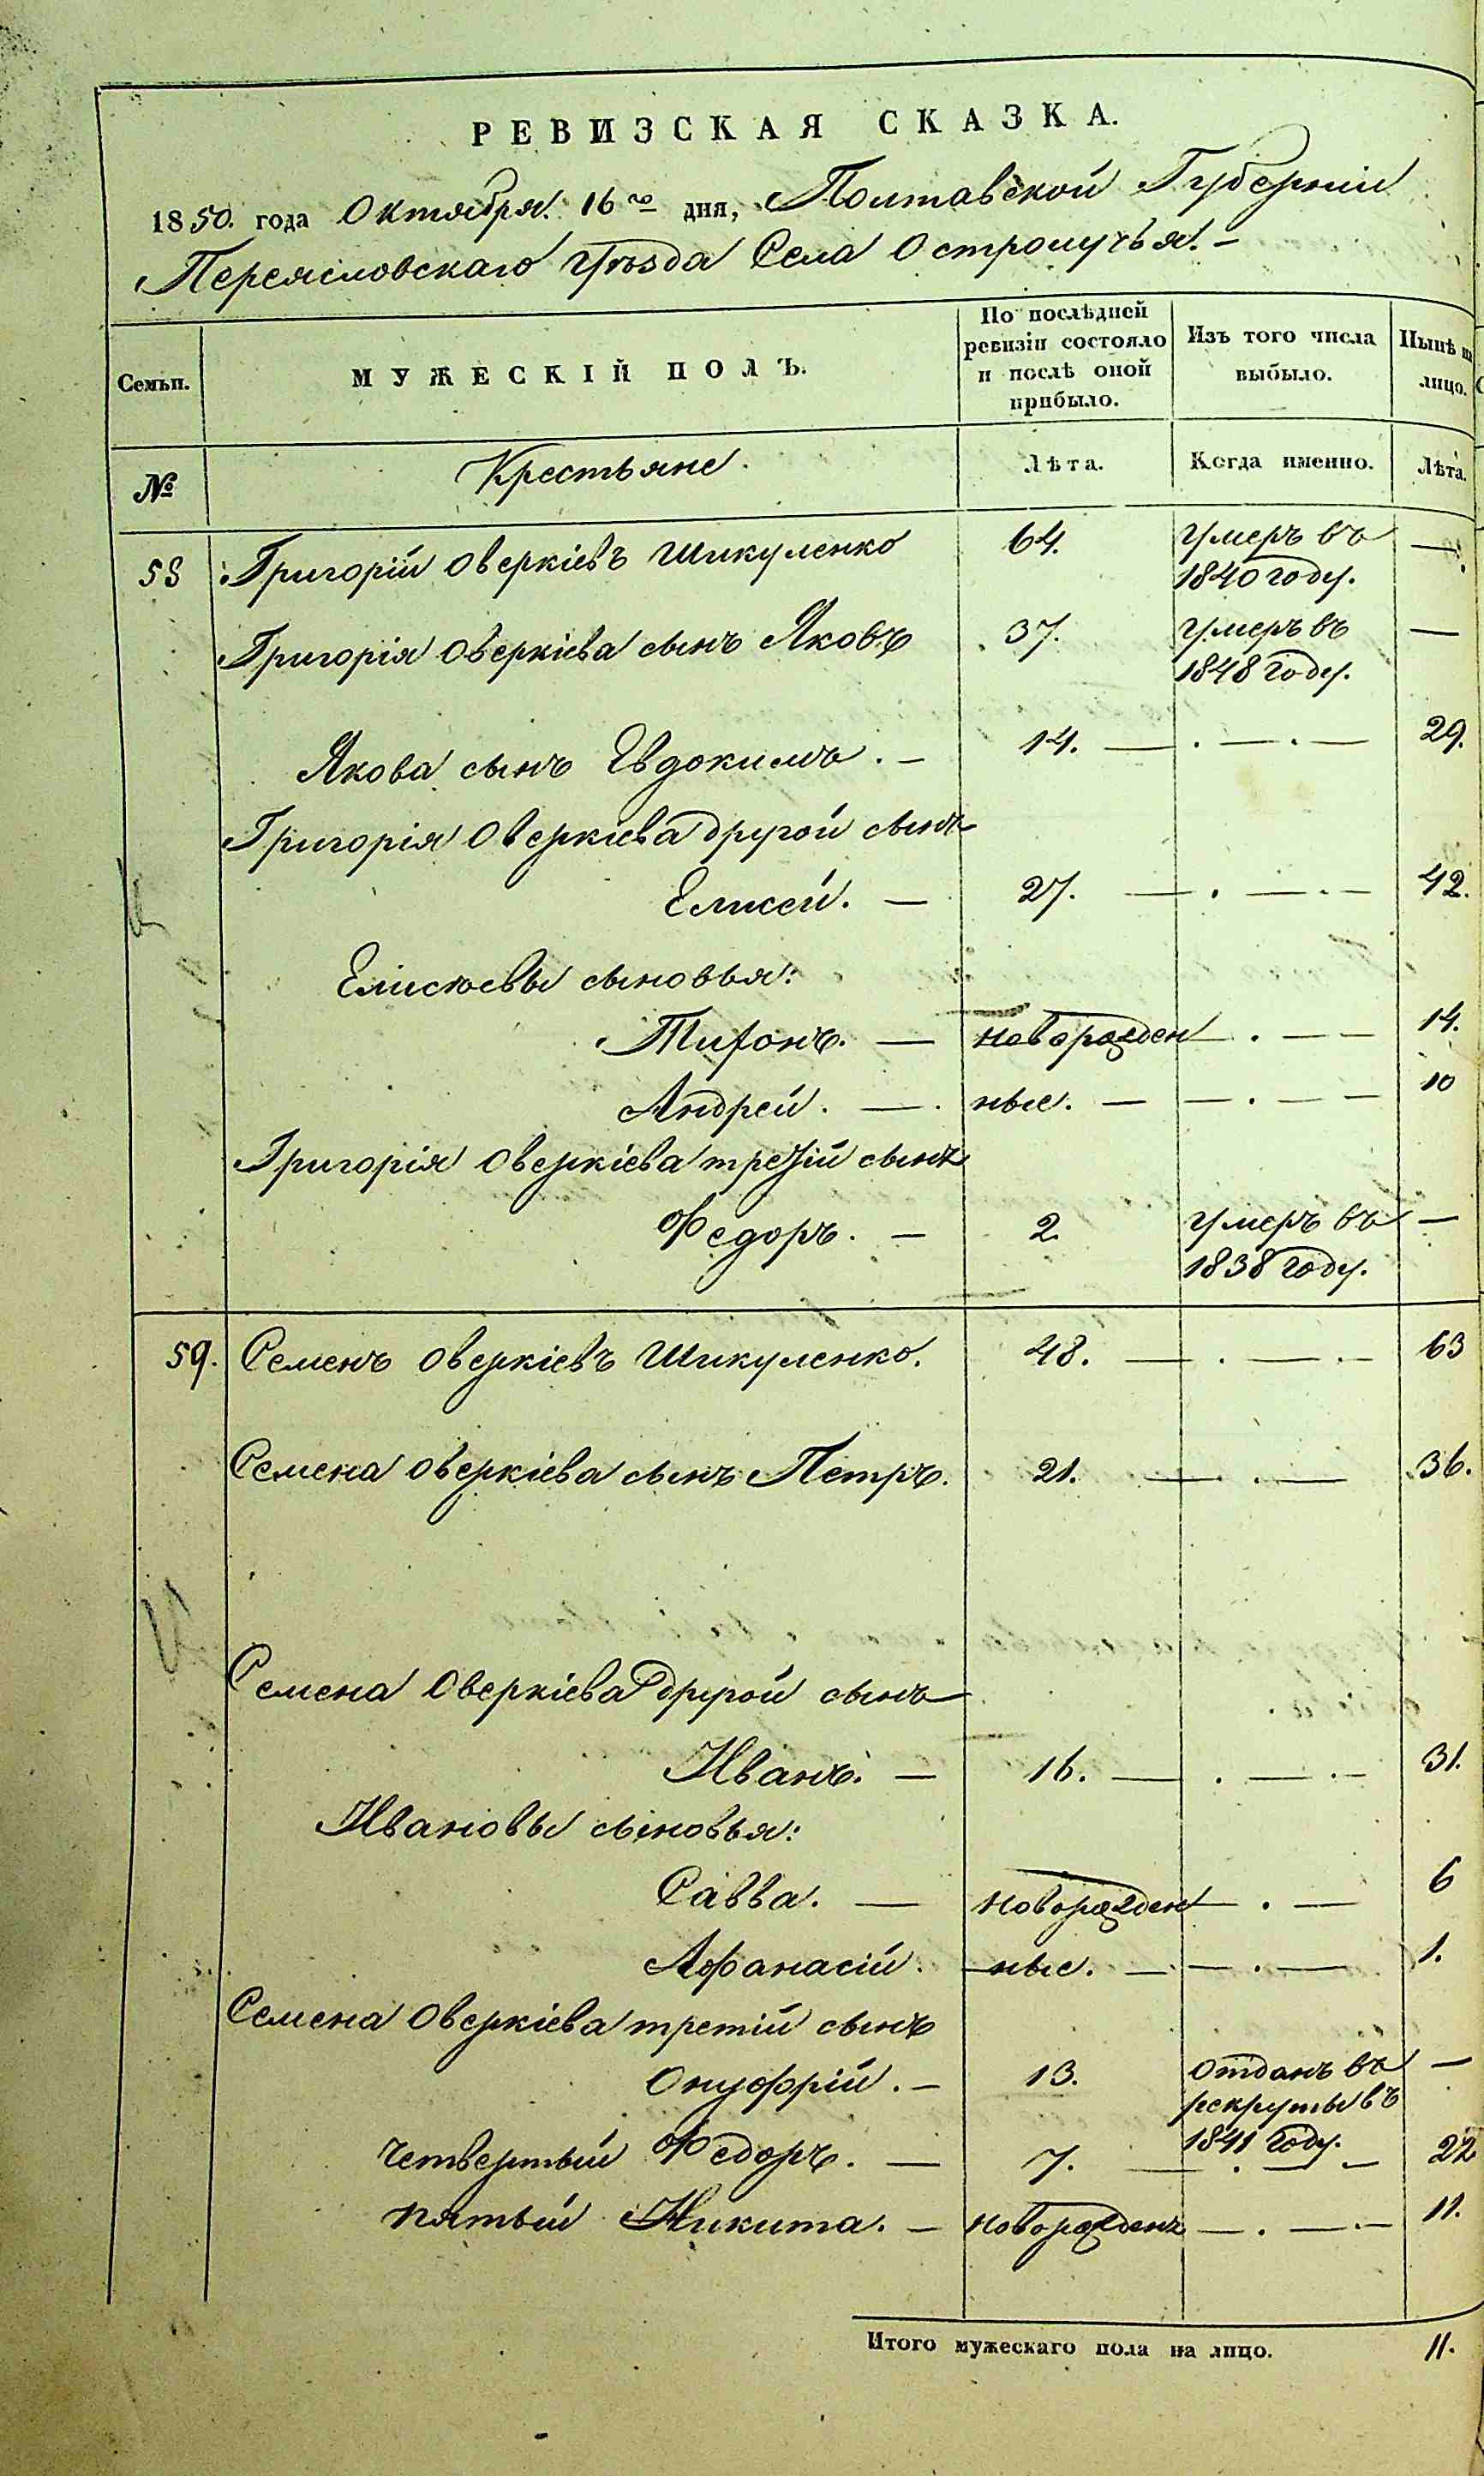 РЕВИЗСКАЯ СКАЗКА.
1850. года Октября. 16го дня, Полтавской Губернiи
Переясловскаго Уѣзда Села Остролучья. –
Семьи.
МУЖЕСКIЙ ПОЛЪ.
По послѣдней ревизiи состояло и послѣ оной прибыло.
Изъ того числа выбыло.
Нынѣ на лицо.
№ Крестьяне. Лѣта. Когда именно. Лѣта.
58 Григорiй Оверкiевъ Шикуленко 64. умеръ въ —
1840 году.
Григорiя Оверкiева сынъ Яковъ 37. умеръ въ —
1848 году.
Якова сынъ Евдокимъ. – 14. — . — . — 29.
Григорiя Оверкiева другой сынъ
Елисей. — 27. — . — . — 42.
Елисѣевы сыновья:
Тифонъ. — новорожден — . — — 14.
Андрей. — . ные. — — . — — 10
Григорiя Оверкiева третiй сынъ
Федоръ. — 2. умеръ въ —
1838 году.
59. Семенъ Оверкiевъ Шикуленко. 48. — . — . — 63
Семена Оверкiева сынъ Петръ. 21. — . — 36.
Семена Оверкiева другой сынъ
Иванъ. — 16. — . — . — 31.
Ивановы сыновья:
Савва. — новорожден — . — 6
Афанасiй. ные. — . — . — 1.
Семена Оверкiева третiй сынъ
Онуфрiй. – 13. отданъ въ —
рекруты въ
1841 году.
четвертый Федоръ. — 7. — . — – 22
пятый Никита. — новорожденъ — . — . — 11.
Итого мужескаго пола на лицо. 11.